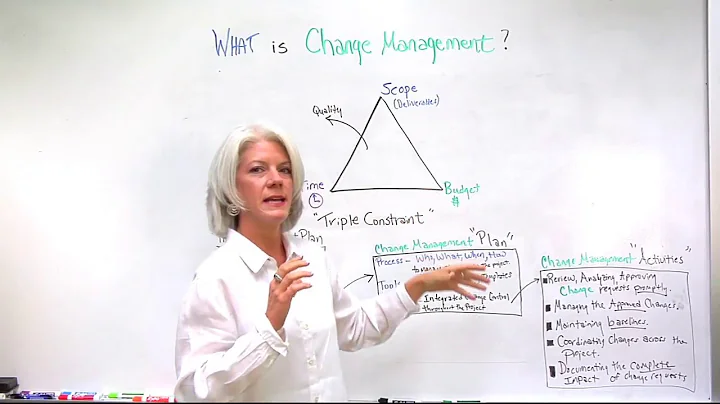 WHAT is Change Management?
Scope
(Deliverables)
Quality
Time
Budget
$
"Triple Constraint"
Plan
Change Management "Plan"
Process - Who, What, When, How
to the project
Tools
Integrated Change Control
throughout the Project
Change Management "Activities"
Review, Analyzing, Approving
Change requests promptly.
Managing the Approved Changes.
Maintaining baselines.
Coordinating Changes across the
Project.
Documenting the Complete
Impact of change requests